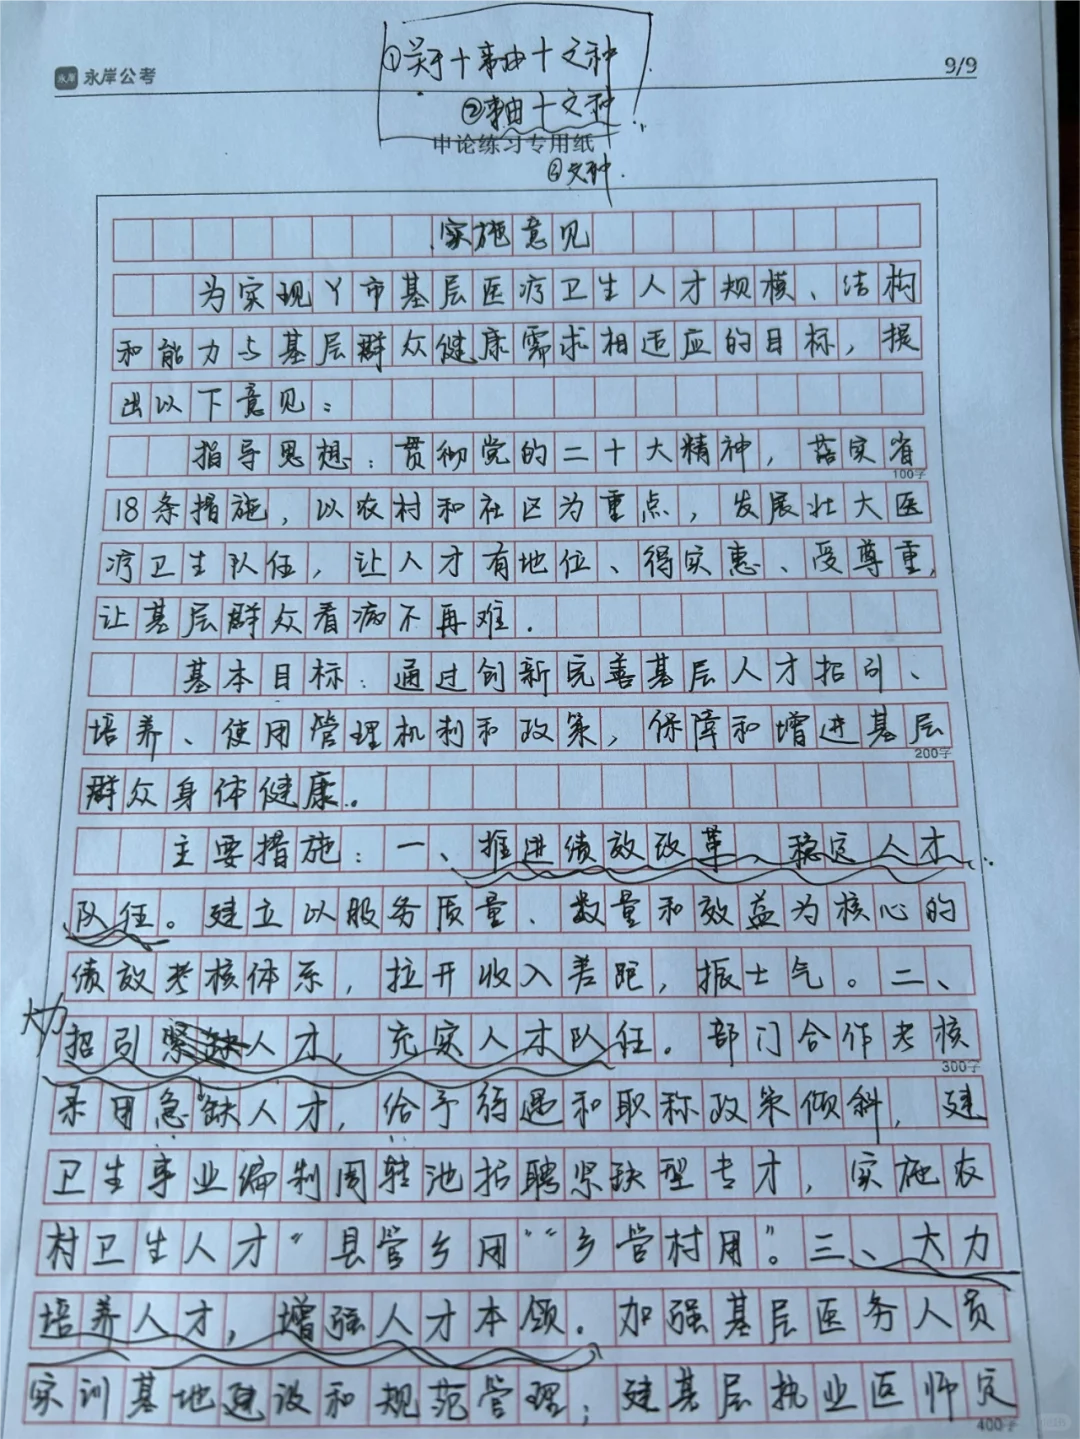 ①关于十事由十文种
永岸公考
9/9
②事由十文种
申论练习专用纸
③文种.
实施意见
为实现Y市基层医疗卫生人才规模、结构
和能力与基层群众健康需求相适应的目标，提
出以下意见：
指导思想：贯彻党的二十大精神，落实省
100字
18条措施，以农村和社区为重点，发展壮大医
疗卫生队伍，让人才有地位、得实惠、受尊重，
让基层群众看病不再难.
基本目标：通过创新完善基层人才招引、
培养、使用管理机制和政策，保障和增进基层
200字
群众身体健康。
主要措施：一、推进绩效改革、稳定人才
队伍。建立以服务质量、数量和效益为核心的
绩效考核体系，拉开收入差距，振士气。二、
大力
招引紧缺人才，充实人才队伍。部门合作考核
300字
录用急缺人才，给予待遇和职称政策倾斜，建
卫生事业编制周转池招聘紧缺型专才，实施农
村卫生人才“县管乡用”“乡管村用”。三、大力
培养人才，增强人才本领。加强基层医务人员
实训基地建设和规范管理；建基层执业医师定
400字